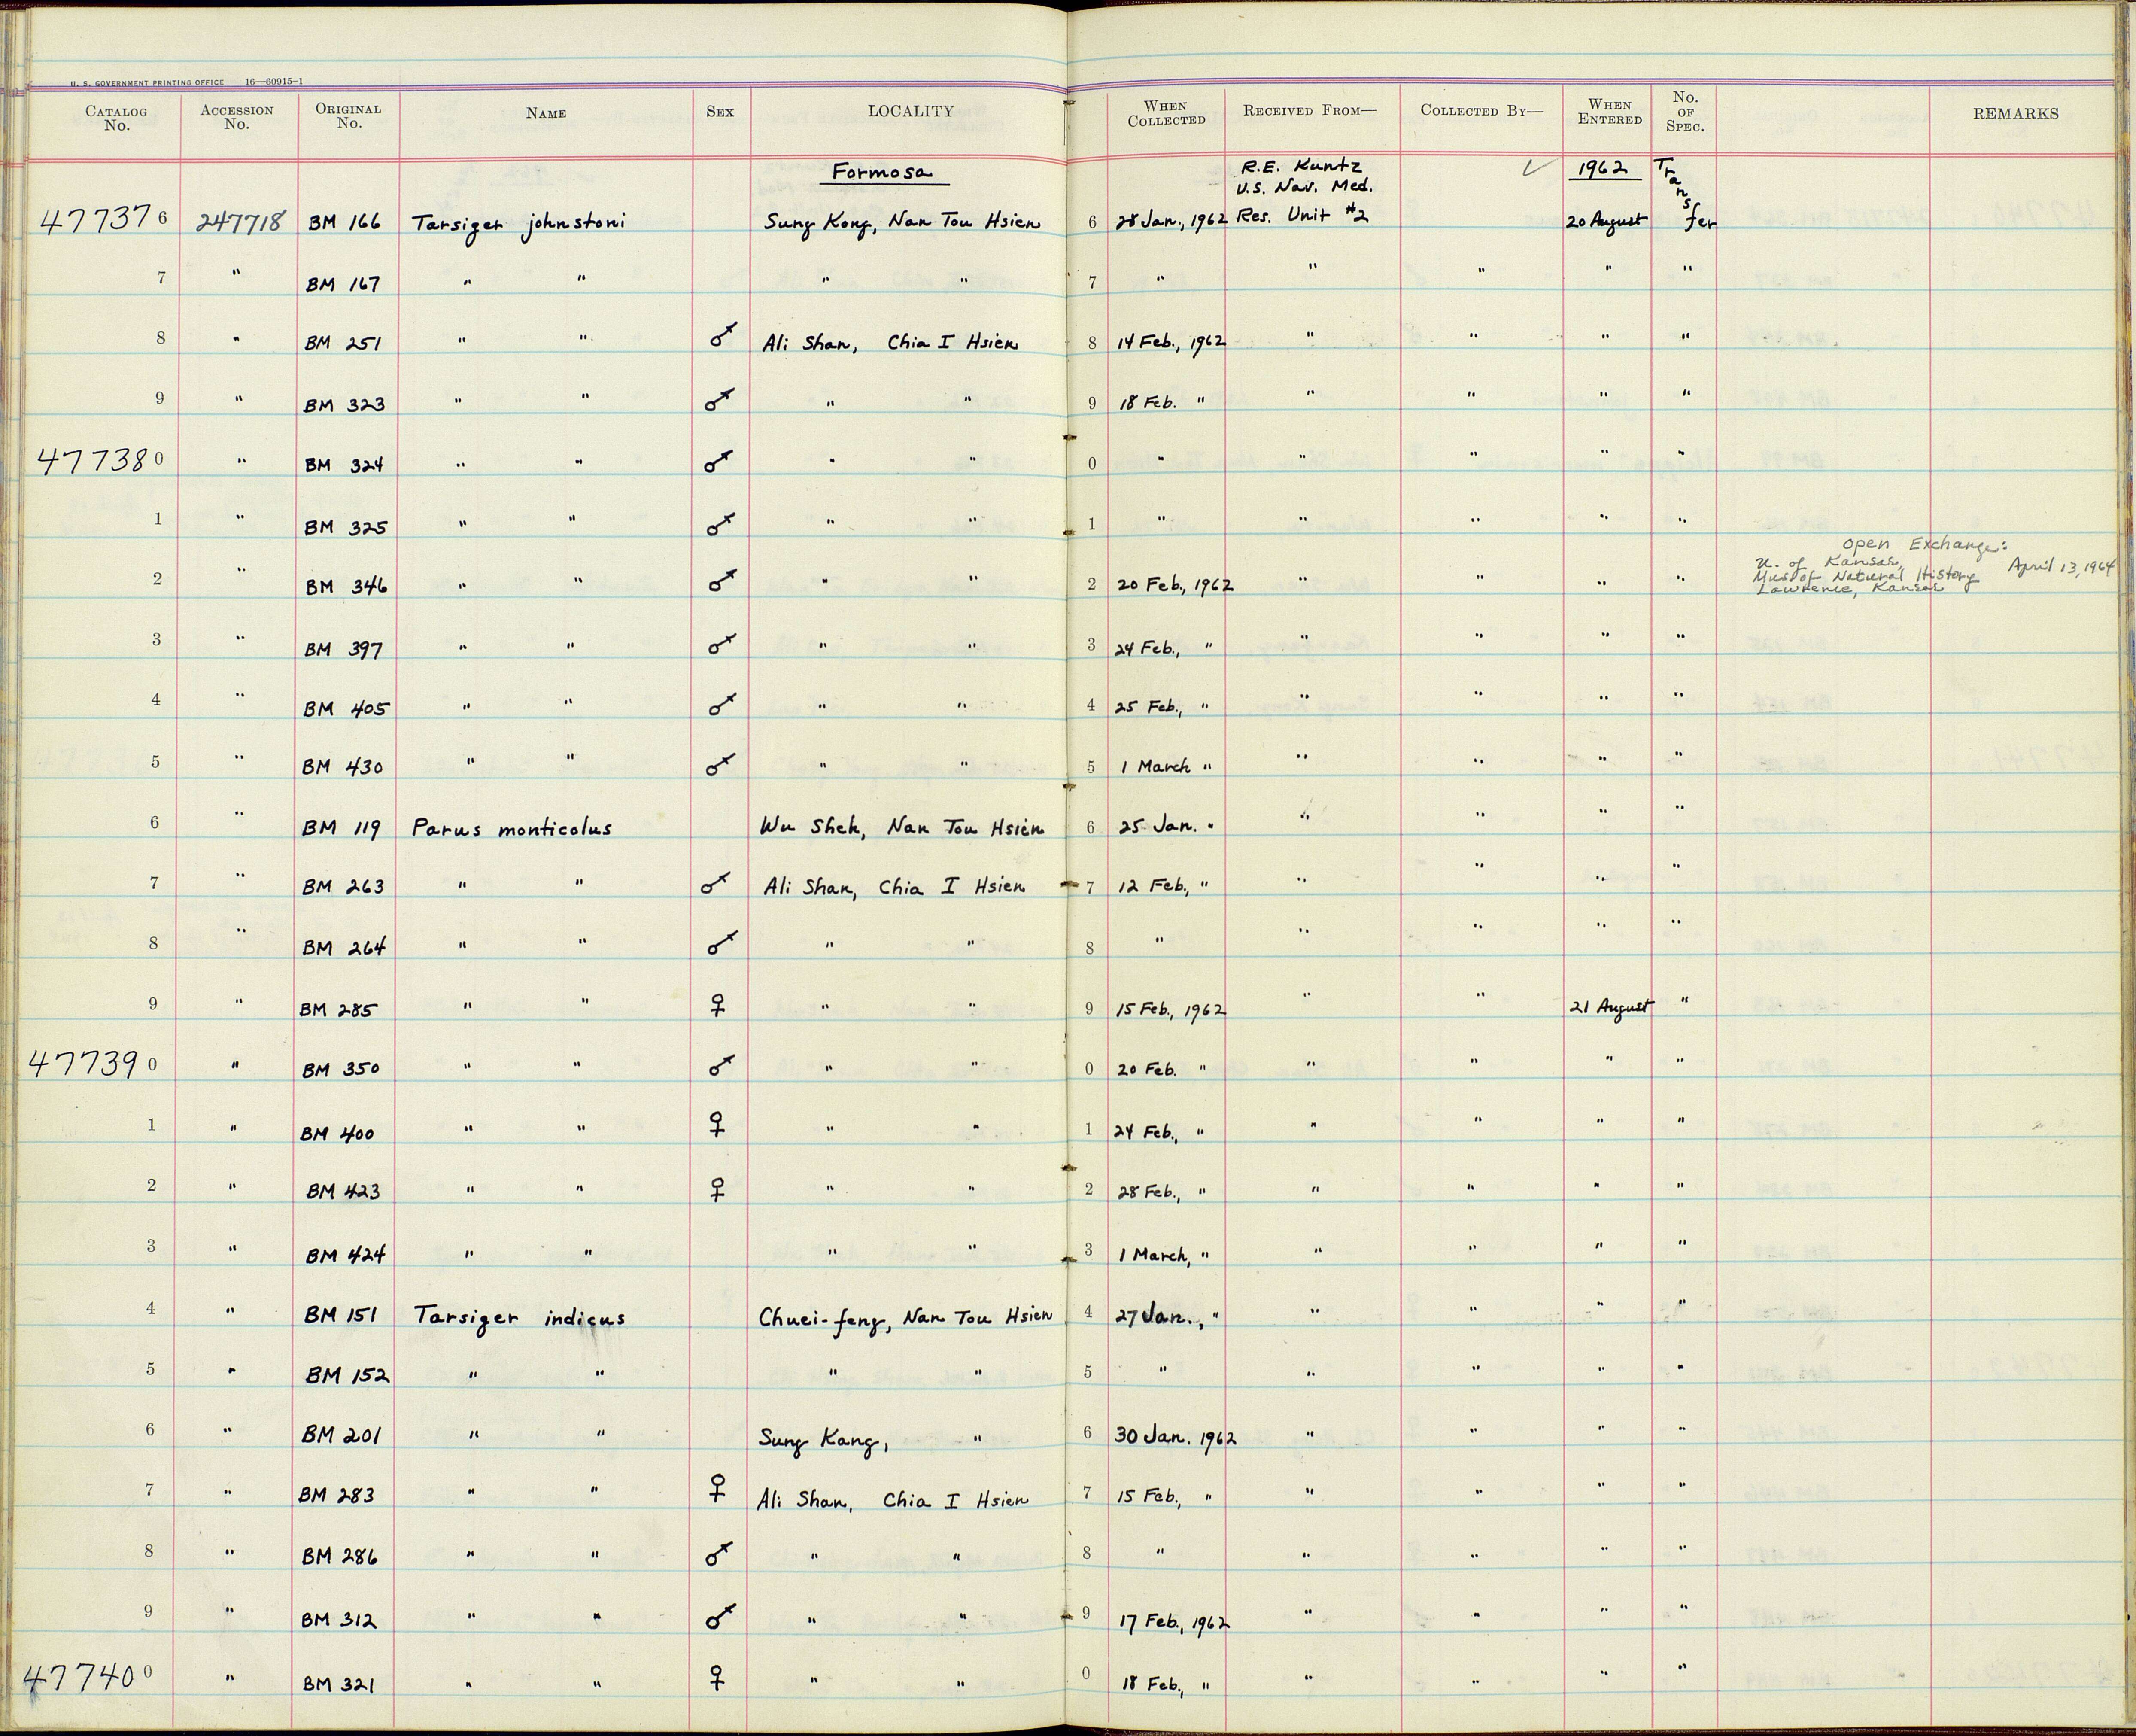 U. S. GOVERNMENT PRINTING OFFICE 16—60915-1
CATALOG No. ACCESSION No. ORIGINAL No. NAME SEX LOCALITY WHEN COLLECTED RECEIVED FROM— COLLECTED BY— WHEN ENTERED No. OF SPEC. REMARKS
Formosa R.E. Kuntz ✓ 1962 Transfer
U.S. Nav. Med.
477376 247718 BM 166 Tarsiger johnstoni Sung Kong, Nan Tou Hsien 6 28 Jan., 1962 Res. Unit #2 20 August
7 " BM 167 " " " " 7 " " " " "
8 " BM 251 " " ♂ Ali Shan, Chia I Hsien 8 14 Feb., 1962 " " " "
9 " BM 323 " " ♂ " " 9 18 Feb. " " " " "
477380 " BM 324 " " ♂ " " 0 " " " " "
1 " BM 325 " " ♂ " " 1 " " " " "
open Exchange:
U. of Kansas, April 13, 1964
2 " BM 346 " " ♂ " " 2 20 Feb., 1962 " " " " Mus of Natural History
Lawrence, Kansas
3 " BM 397 " " ♂ " " 3 24 Feb., " " " " "
4 " BM 405 " " ♂ " " 4 25 Feb., " " " " "
5 " BM 430 " " ♂ " " 5 1 March " " " " "
6 " BM 119 Parus monticolus Wu Sheh, Nan Tou Hsien 6 25 Jan. " " " " "
7 " BM 263 " " ♂ Ali Shan, Chia I Hsien 7 12 Feb., " " " " "
8 " BM 264 " " ♂ " " 8 " " " " "
9 " BM 285 " " ♀ " " 9 15 Feb., 1962 " " 21 August "
477390 " BM 350 " " ♂ " " 0 20 Feb. " " " " "
1 " BM 400 " " ♀ " " 1 24 Feb., " " " " "
2 " BM 423 " " ♀ " " 2 28 Feb., " " " " "
3 " BM 424 " " " " 3 1 March, " " " " "
4 " BM 151 Tarsiger indicus Chuei-feng, Nan Tou Hsien 4 27 Jan., " " " " "
5 " BM 152 " " " " 5 " " " " "
6 " BM 201 " " Sung Kang, " 6 30 Jan. 1962 " " " "
7 " BM 283 " " ♀ Ali Shan, Chia I Hsien 7 15 Feb., " " " " "
8 " BM 286 " " ♂ " " 8 " " " " "
9 " BM 312 " " ♂ " " 9 17 Feb., 1962 " " " "
477400 " BM 321 " " ♀ " " 0 18 Feb., " " " " "